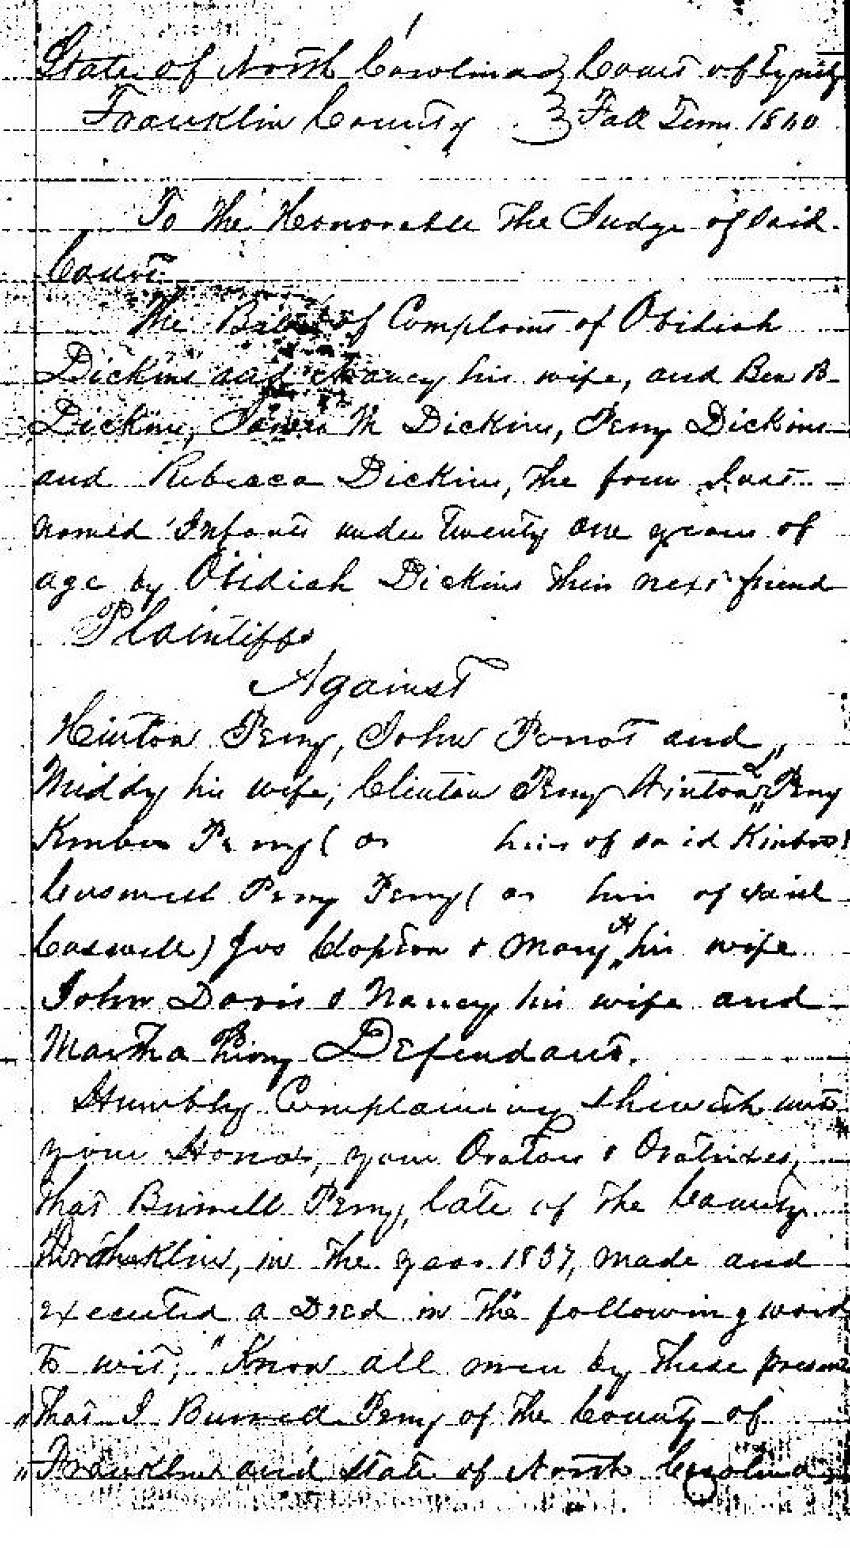 State of North Carolina } Court of Equity
Franklin County } Fall Term 1840
To the Honorable the Judge of said
Court
The Bill of Complaint of Obidiah
Dickins and Nancy his wife, and Ben B
Dickins, James M Dickins, Perry Dickins
and Rebecca Dickins, the four last
named Infants under twenty one years of
age by Obidiah Dickins their next friend
Plaintiffs
Against
Hinton Perry, John Parrot and
Middy his wife, Clinton Perry Winton Perry
Kimbro Perry ( or heirs of said Kimbro)
Perry Perry ( or heirs of said
Caswell) Jno Clopton & Mary A his wife
John Davis & Nancy his wife and
Martha Perry Defendants.
Humbly Complaining sheweth unto
your Honor, your Orators & Oratrixes,
that Burwell Perry, late of the County
Franklin, in the year 1837, made and
executed a Deed in the following words
to wit; "Know all men by these presents
"that I Burwell Perry of the County of
"Franklin and State of North Carolina